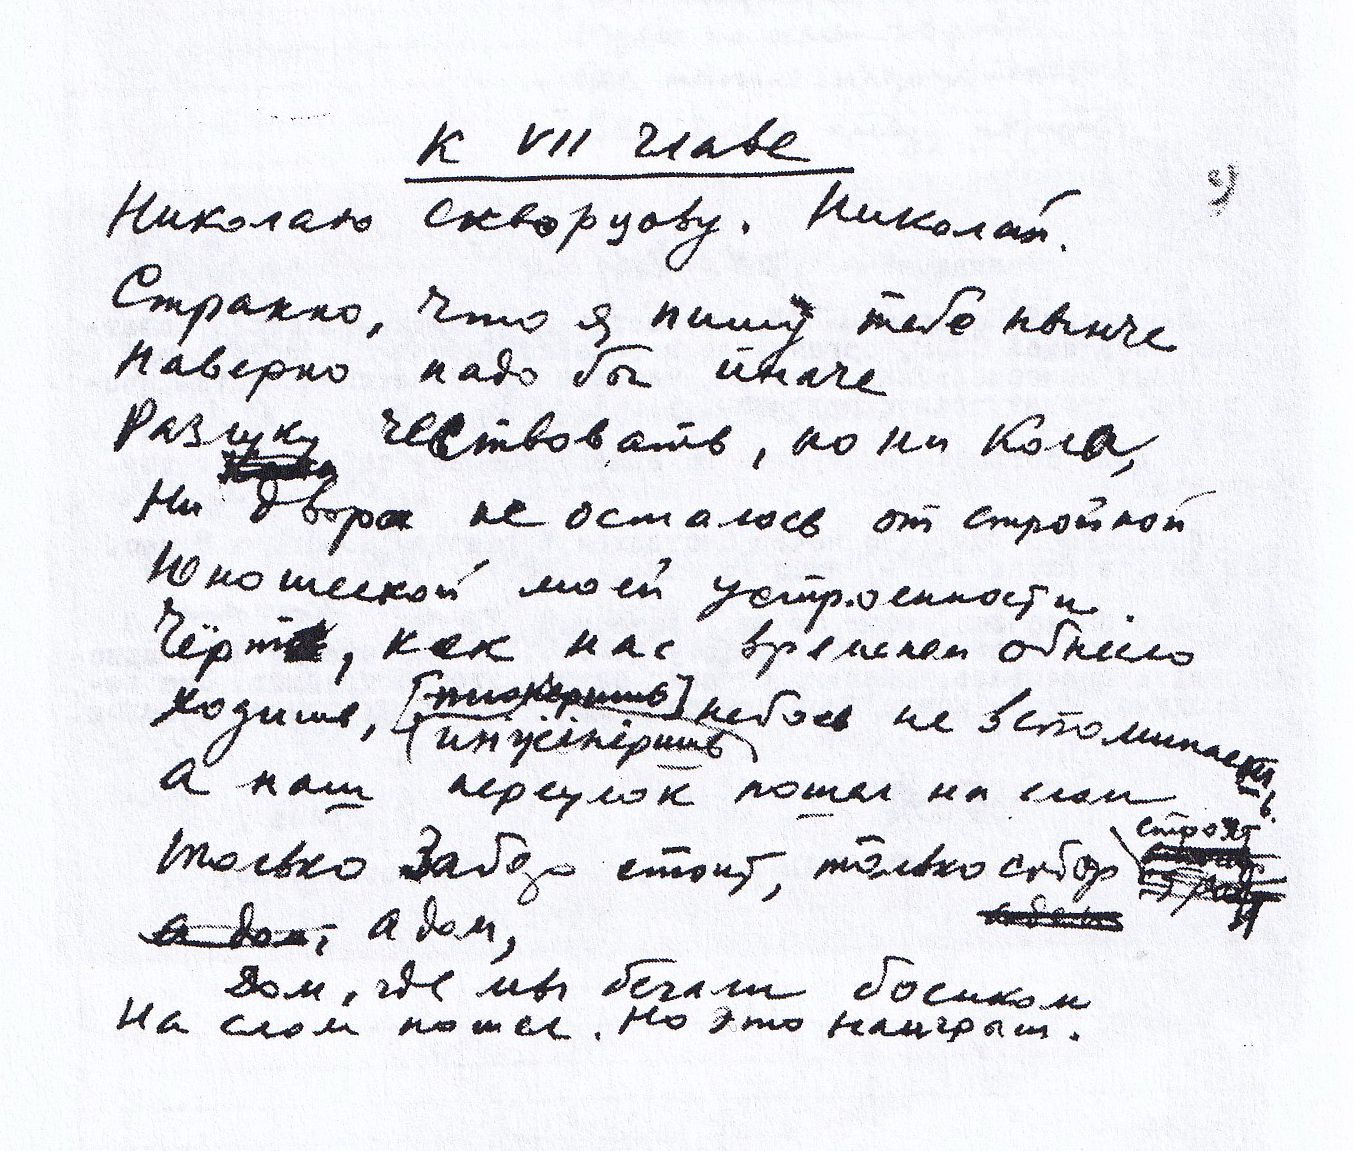 К VII главе
Николаю Скворцову. Николай.
Странно, что я пишу тебе нынче
Наверно надо бы иначе
Разлуку чествовать, но ни кола,
Ни двора не осталось от стройной
Юношеской моей устроенности.
Чёрт, как нас временем обнесло
Ходишь, [пионеришь] небось не вспоминаешь
(инженеришь)
А наш переулок пошел на слом
строят
Только забор стоит, только собор
а дом, А дом,
Дом, где мы бегали босиком
На слом пошел. Но это наигрыш.